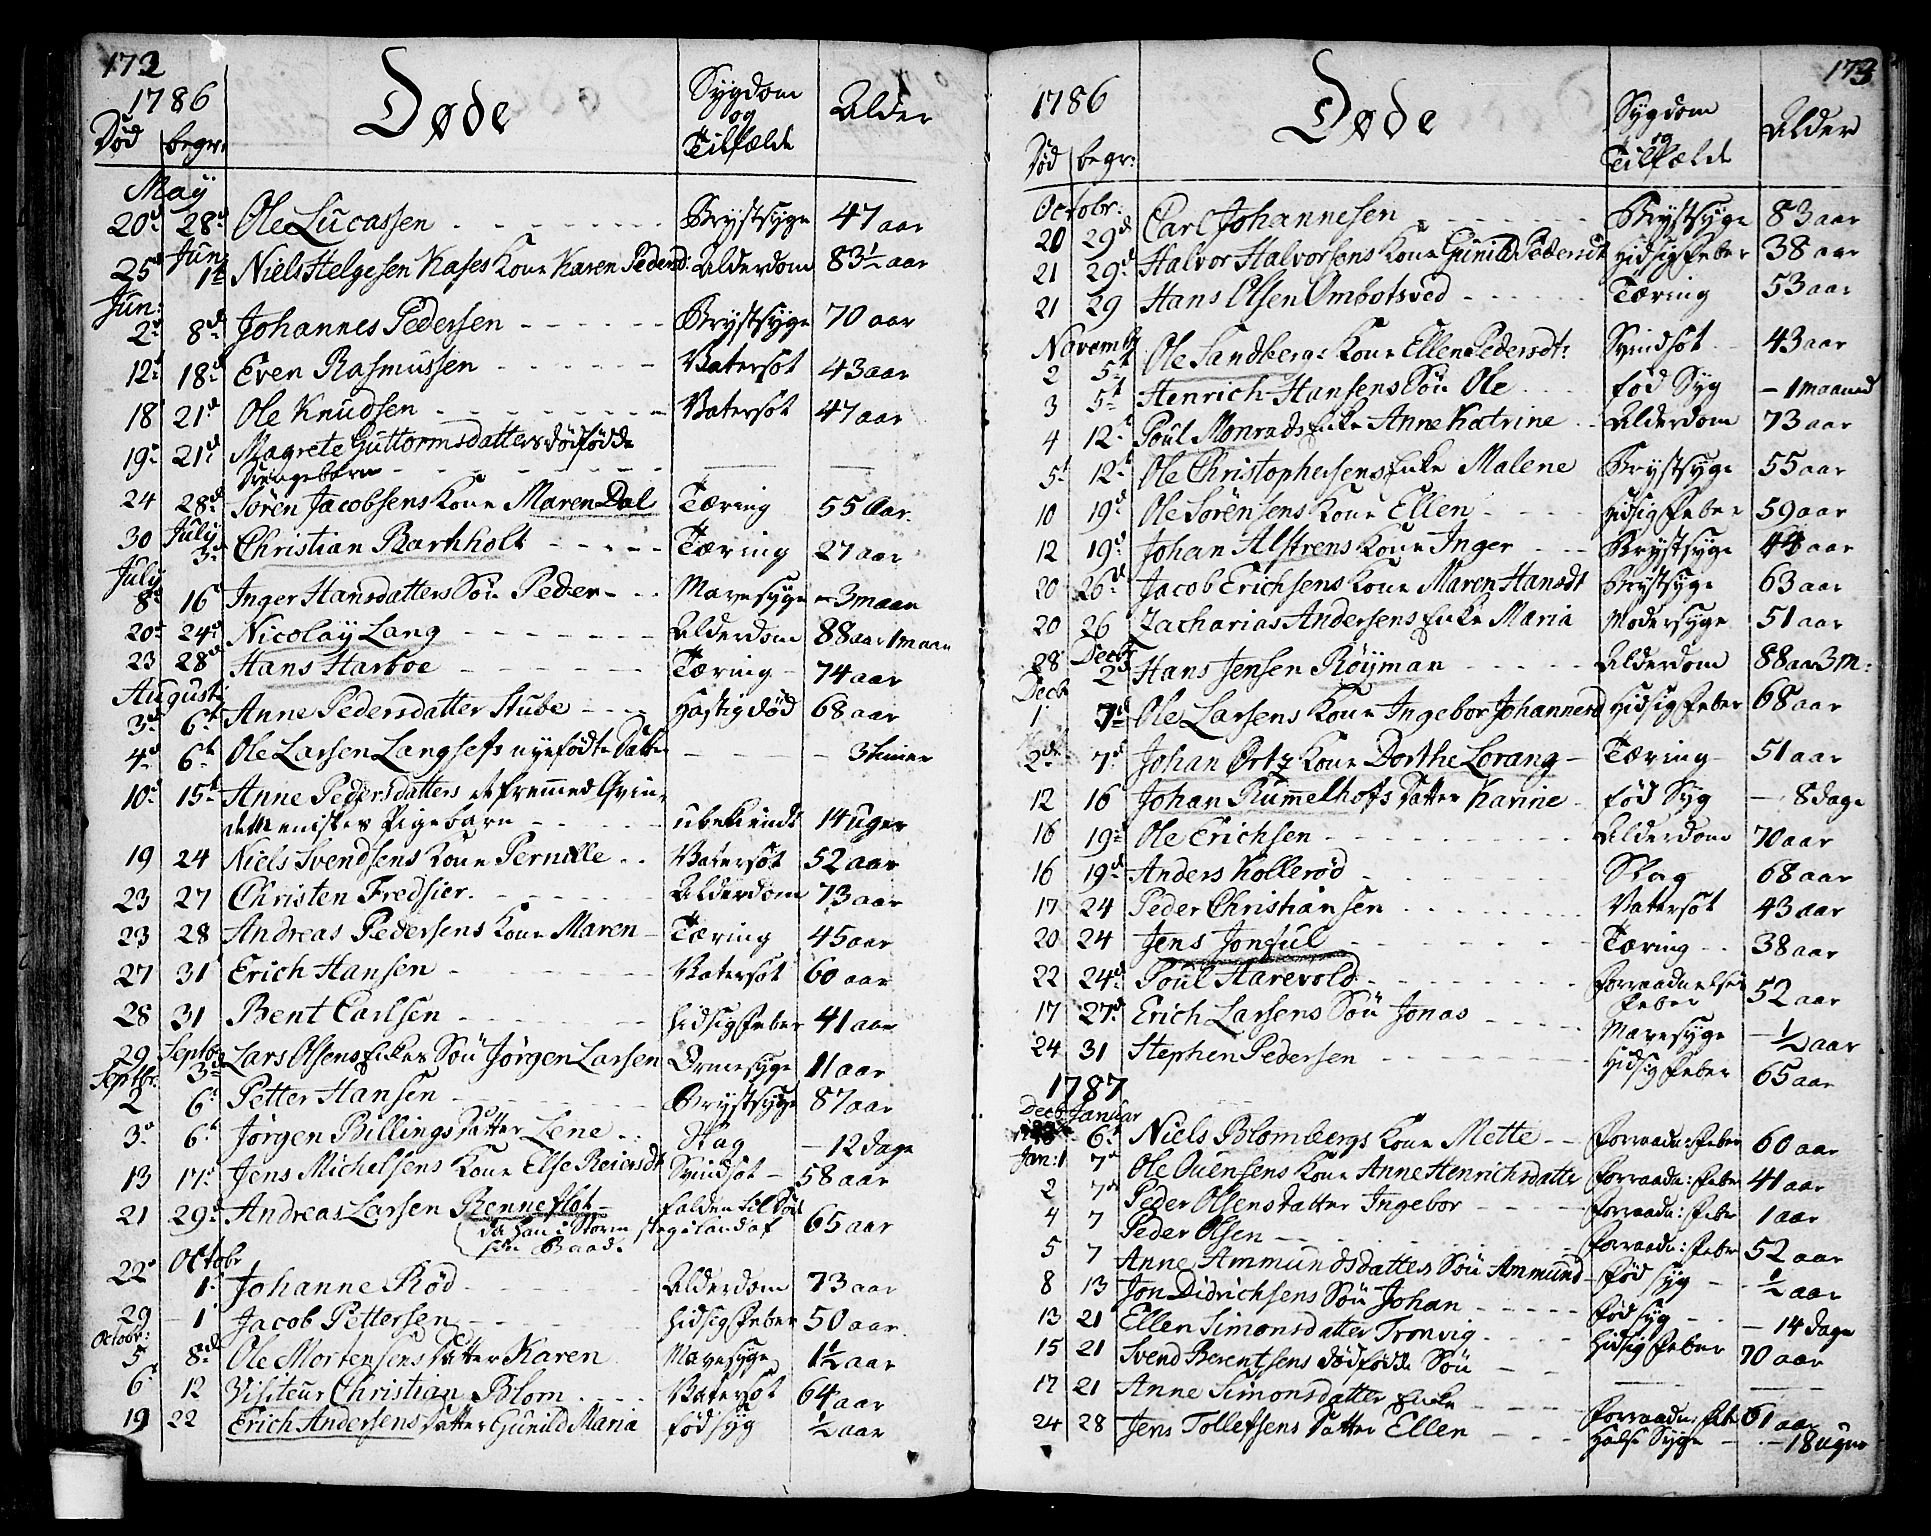 172
1786
Døde
Sygdom og Tilfælde
Alder
Død begr:
May
20d 28d Ole Lucassen Brystsyge 47 aar
Jun:
25d 1t Niels Helgesen Kases Kone Karen Pedersd: Alderdom 83½ aar
Jun:
2d 8d Johannes Pedersen Brystsyge 70 aar
12t 18d Even Rasmussen Vatersot 43 aar
18 21d Ole Knudsen Vatersot 47 aar
19 21d Magrete Guttormsdatters dødfødde
Drengebarn
24 28d Søren Jacobsens Kone Maren Dal Tæring 55 aar.
July
30 3d Christian Barkholt Tæring 27 aar
July
8d 16d Inger Hansdatters Søn Peder Mavesyge – 3 maan
20d 24d Nicolay Lang Alderdom 88 aar 1 maan
23 28d Hans Harboe Tæring 74 aar
August:
3d 6t Anne Pedersdatter Stube Hastig død 68 aar
4d 6t Ole Larsen Langsets nyefødte Datter 3 timer
10d 15d Anne Pedersdatters et fremmed Qvin-
demeniskes Pigebarn ubekiendt 14 uger
19 24 Niels Svendsens Kone Pernille Vatersot 52 aar
23 27 Christen Fredsier. Alderdom 73 aar
23 28 Andreas Pedersens Kone Maren Tæring 45 aar
27 31 Erich Hansen Vatersot 60 aar
28 31 Bent Carlsen Hidsig Feber 41 aar
Septbr
29 3d Lars Olsens Enkes Søn Jørgen Larsen Ormesyge 11 aar
Septbr:
2 6t Petter Hansen Brystsyge 87 aar
3d 6t Jørgen Billings Datter Lene Slag – 12 dage
13 17d Jens Michelsens Kone Else Reiersdt Svindsot 58 aar
21 29d Andreas Larsen Renneflot falden til Døde 65 aar
da han i Storm steg i land af
sin Baad.
Octobr
22d 1t Johanne Rød Alderdom 73 aar
29 1 Jacob Pettersen Hidsig Feber 50 aar
Octobr:
5 8d Ole Mortensens Datter Karen Mavesyge 1½ aar
6t 12 Visiteur Christian Blom Vatersot 64 aar
19 22 Erich Andersens Datter Gunild Maria fød syg ½ aar
173
1786
Døde
Sygdom og Tilfælde
Alder
Død begr:
Octobr:
20 29d Carl Johannesen Brystsyge 83 aar
21 29d Halvor Halvorsens Kone Gunild Pedersdt Hidsig Feber 38 aar
21 29 Hans Olsen Ombotsved Tæring 53 aar
Novembr
2 5t Ole Sandbergs Kone Ellen Pedersdt: Svindsot 43 aar
3 5t Henrich Hansens Søn Ole fød Syg – 1 maaned
4 12t Poul Monrads Enke Anne Katrine Alderdom 73 aar
5t 12t Ole Christophersens Enke Malene Brystsyge 55 aar
10 19d Ole Sørensens Kone Ellen Hidsig Feber 59 aar
12 19d Johan Alstrens Kone Inger Brystsyge 44 aar
20 26d Jacob Erichsens Kone Maren Hansdt Brystsyge 63 aar
20 26 Zacharias Andersens Enke Maria Modersyge 51 aar
Decbr
28 2d Hans Jensen Røyman Alderdom 88 aar 3 m:
Decb
1 7d Ole Larsens Kone Ingebor Johannesd Hidsig Feber 68 aar
2d 7d Johan Ørtz Kone Dorthe Lorang Tæring 51 aar
12 16 Johan Rummelhofs Datter Karine fød Syg – 8 dage
16 19d Ole Erichsen Alderdom 70 aar
16 19d Anders Kollerød Slag 68 aar
17 24 Peder Christiansen Vatersot 43 aar
20 24 Jens Jonsul Tæring 38 aar
22 24d Poul Harevold Forraadnelses
Feber 52 aar
17 27d Erich Larsens Søn Jonas Mavesyge – ½ aar
24 31 Stephen Pedersen Hidsig Feber 65 aar
1787
Decb: Januar
6t Niels Blombergs Kone Mette Forraadn: Feber 60 aar
Jan: 1 7d Ole Ouensens Kone Anne Henrichsdatter Forraadn: Feber 41 aar
2 7d Peder Olsens Datter Ingebor Forraadn: Feber 1 aar
4 7 Peder Olsen Forraadn: Feber 52 aar
5 7 Anne Ammundsdatters Søn Ammund fød syg ½ aar
8 13 Jon Didrichsens Søn Johan fød syg – 14 dage
13 21 Ellen Simonsdatter Tronvig Hidsig Feber 70 aar
15 21 Svend Berentsens dødfødde Søn
17 21 Anne Simonsdatter Enke Forraadn: Feber 61 aar
24 28 Jens Tollefsens Datter Ellen Halse Syge – 18 uger